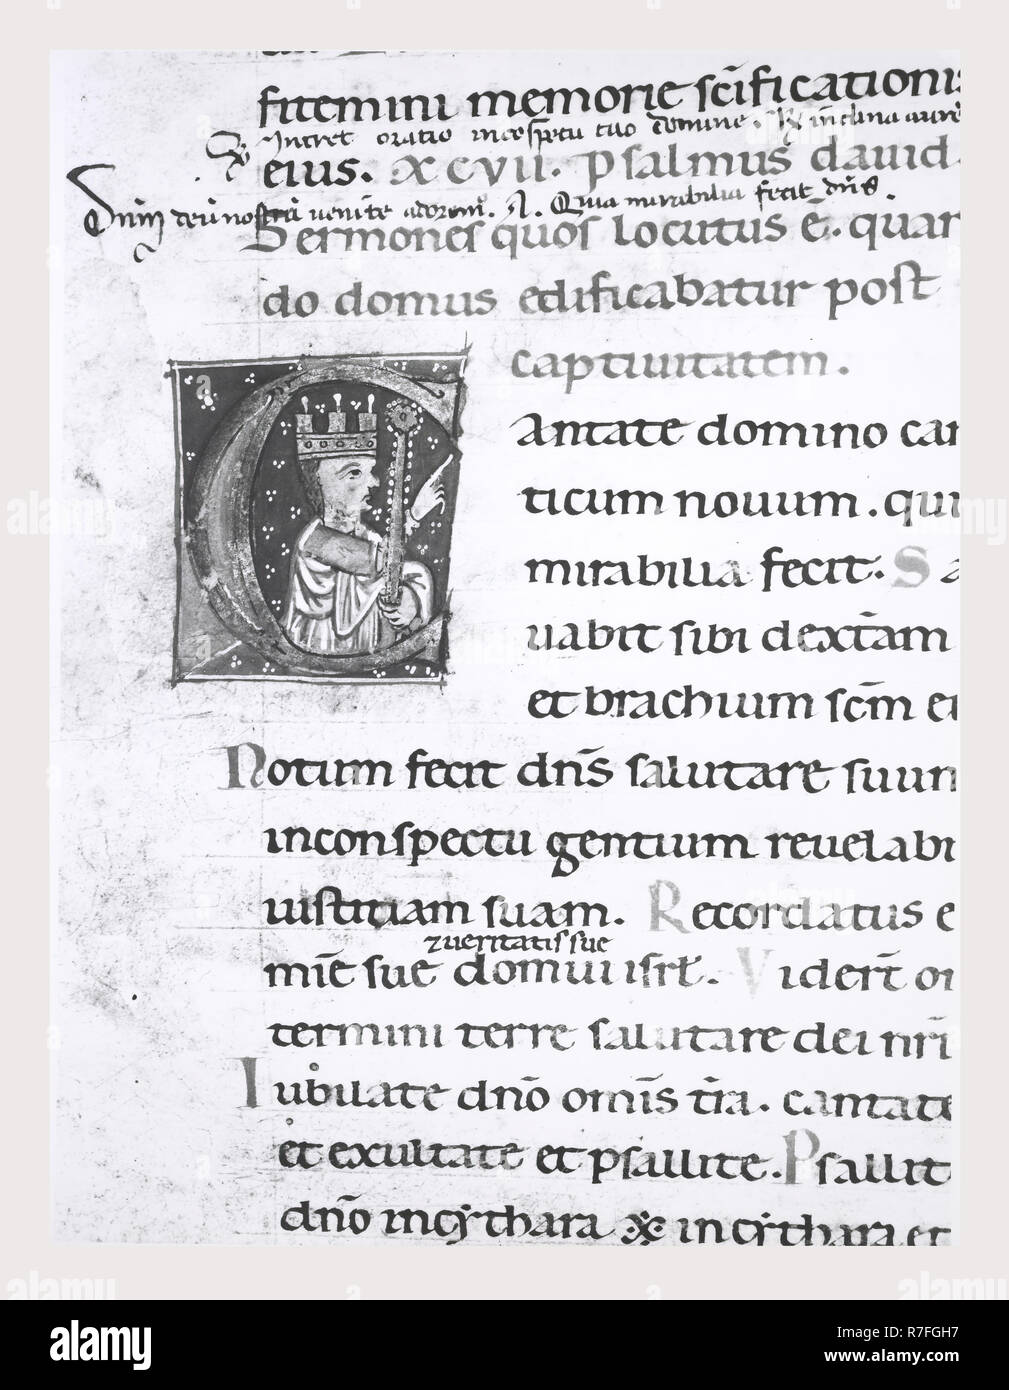 fitemini memorie sc̄ificationis
Intret oratio inconspectu tuo domine. inclina aure
eius. XCVII. psalmus dauid.
venite adorem. Quia mirabilia fecit dn̄s.
Sermones quos locutus ē. quan
do domus edificabatur post
captiuitatem.
Cantate domino can
ticum nouum. qui
mirabilia fecit. Sa
uabit sibi dext̄am
et brachium sc̄m ei
Notum fecit dn̄s salutare suum
inconspectu gentium reuelabi
iustitiam suam. Recordatus e
⁊ueritatis sue
mīe sue domui isrl̄. Viderт̄ om
termini terre salutare dei nr̄i
Iubilate dn̄o omīs tr̄a. cantate
et exultate et psallite. Psallit
dn̄o incythara incythara et
alamy
Image ID: R7FGH7
www.alamy.com